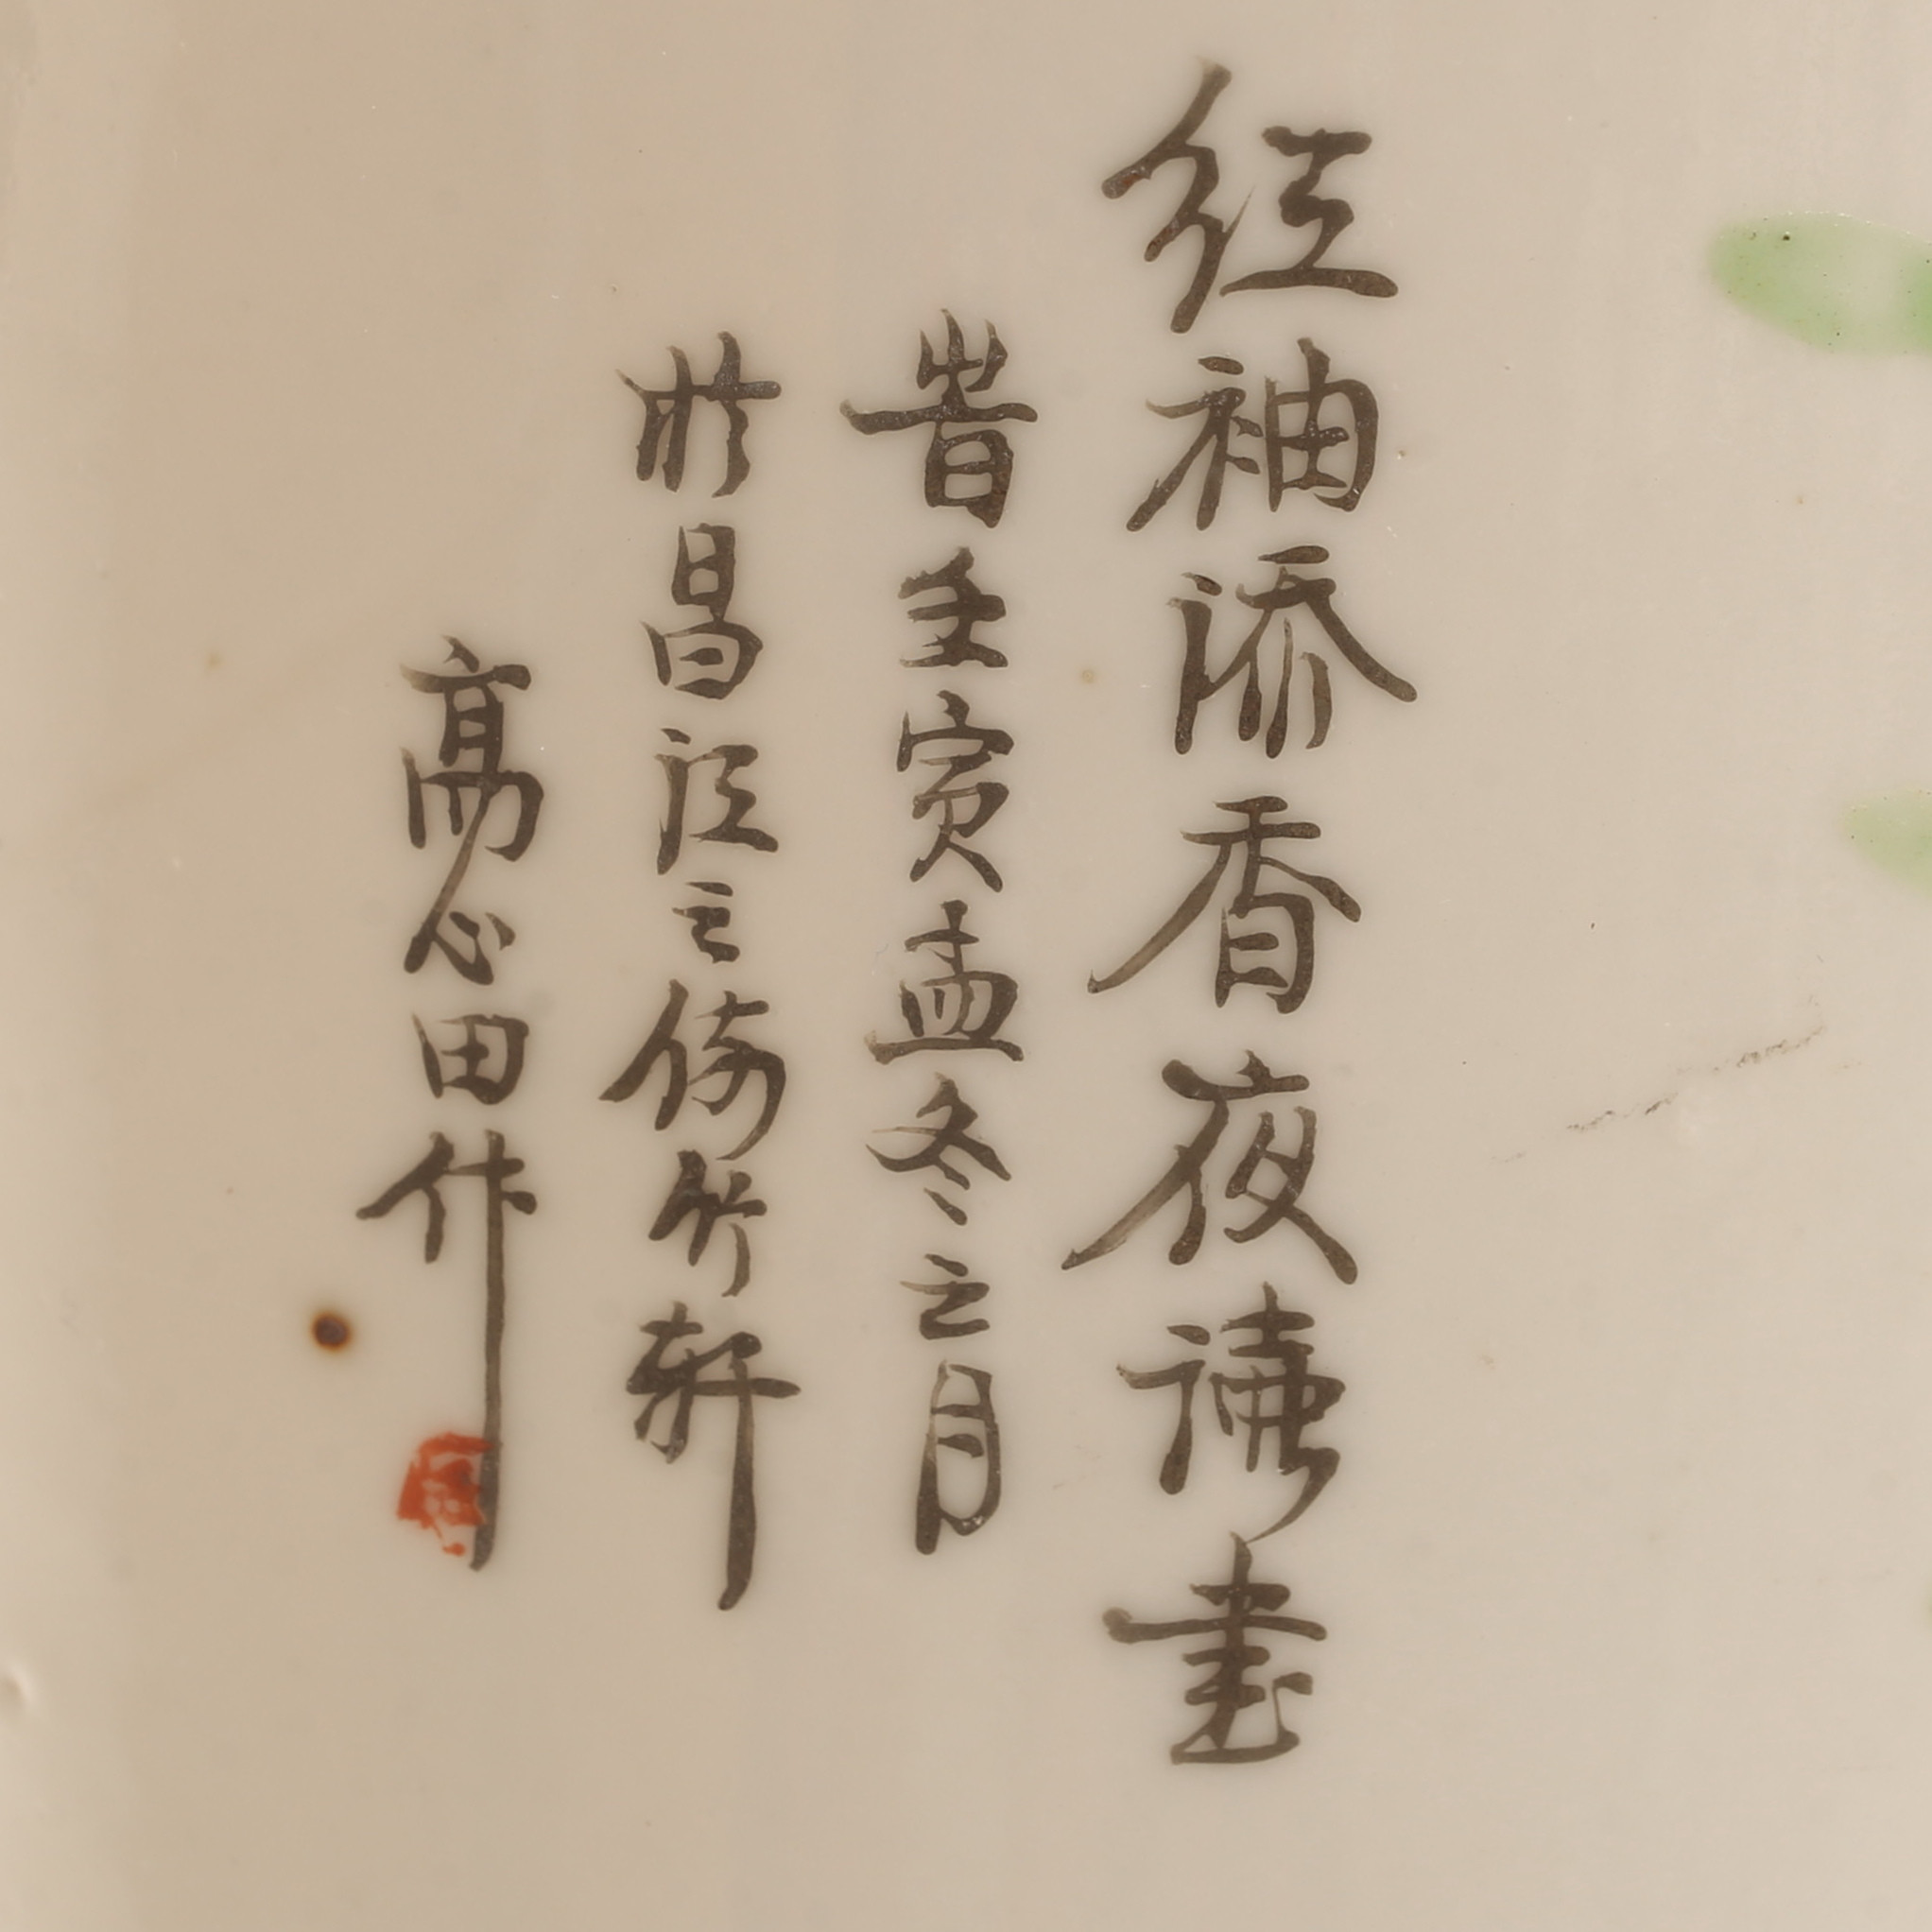 紅袖添香夜讀書
昔壬寅孟冬之月
於昌江之倚竹軒
高心田作